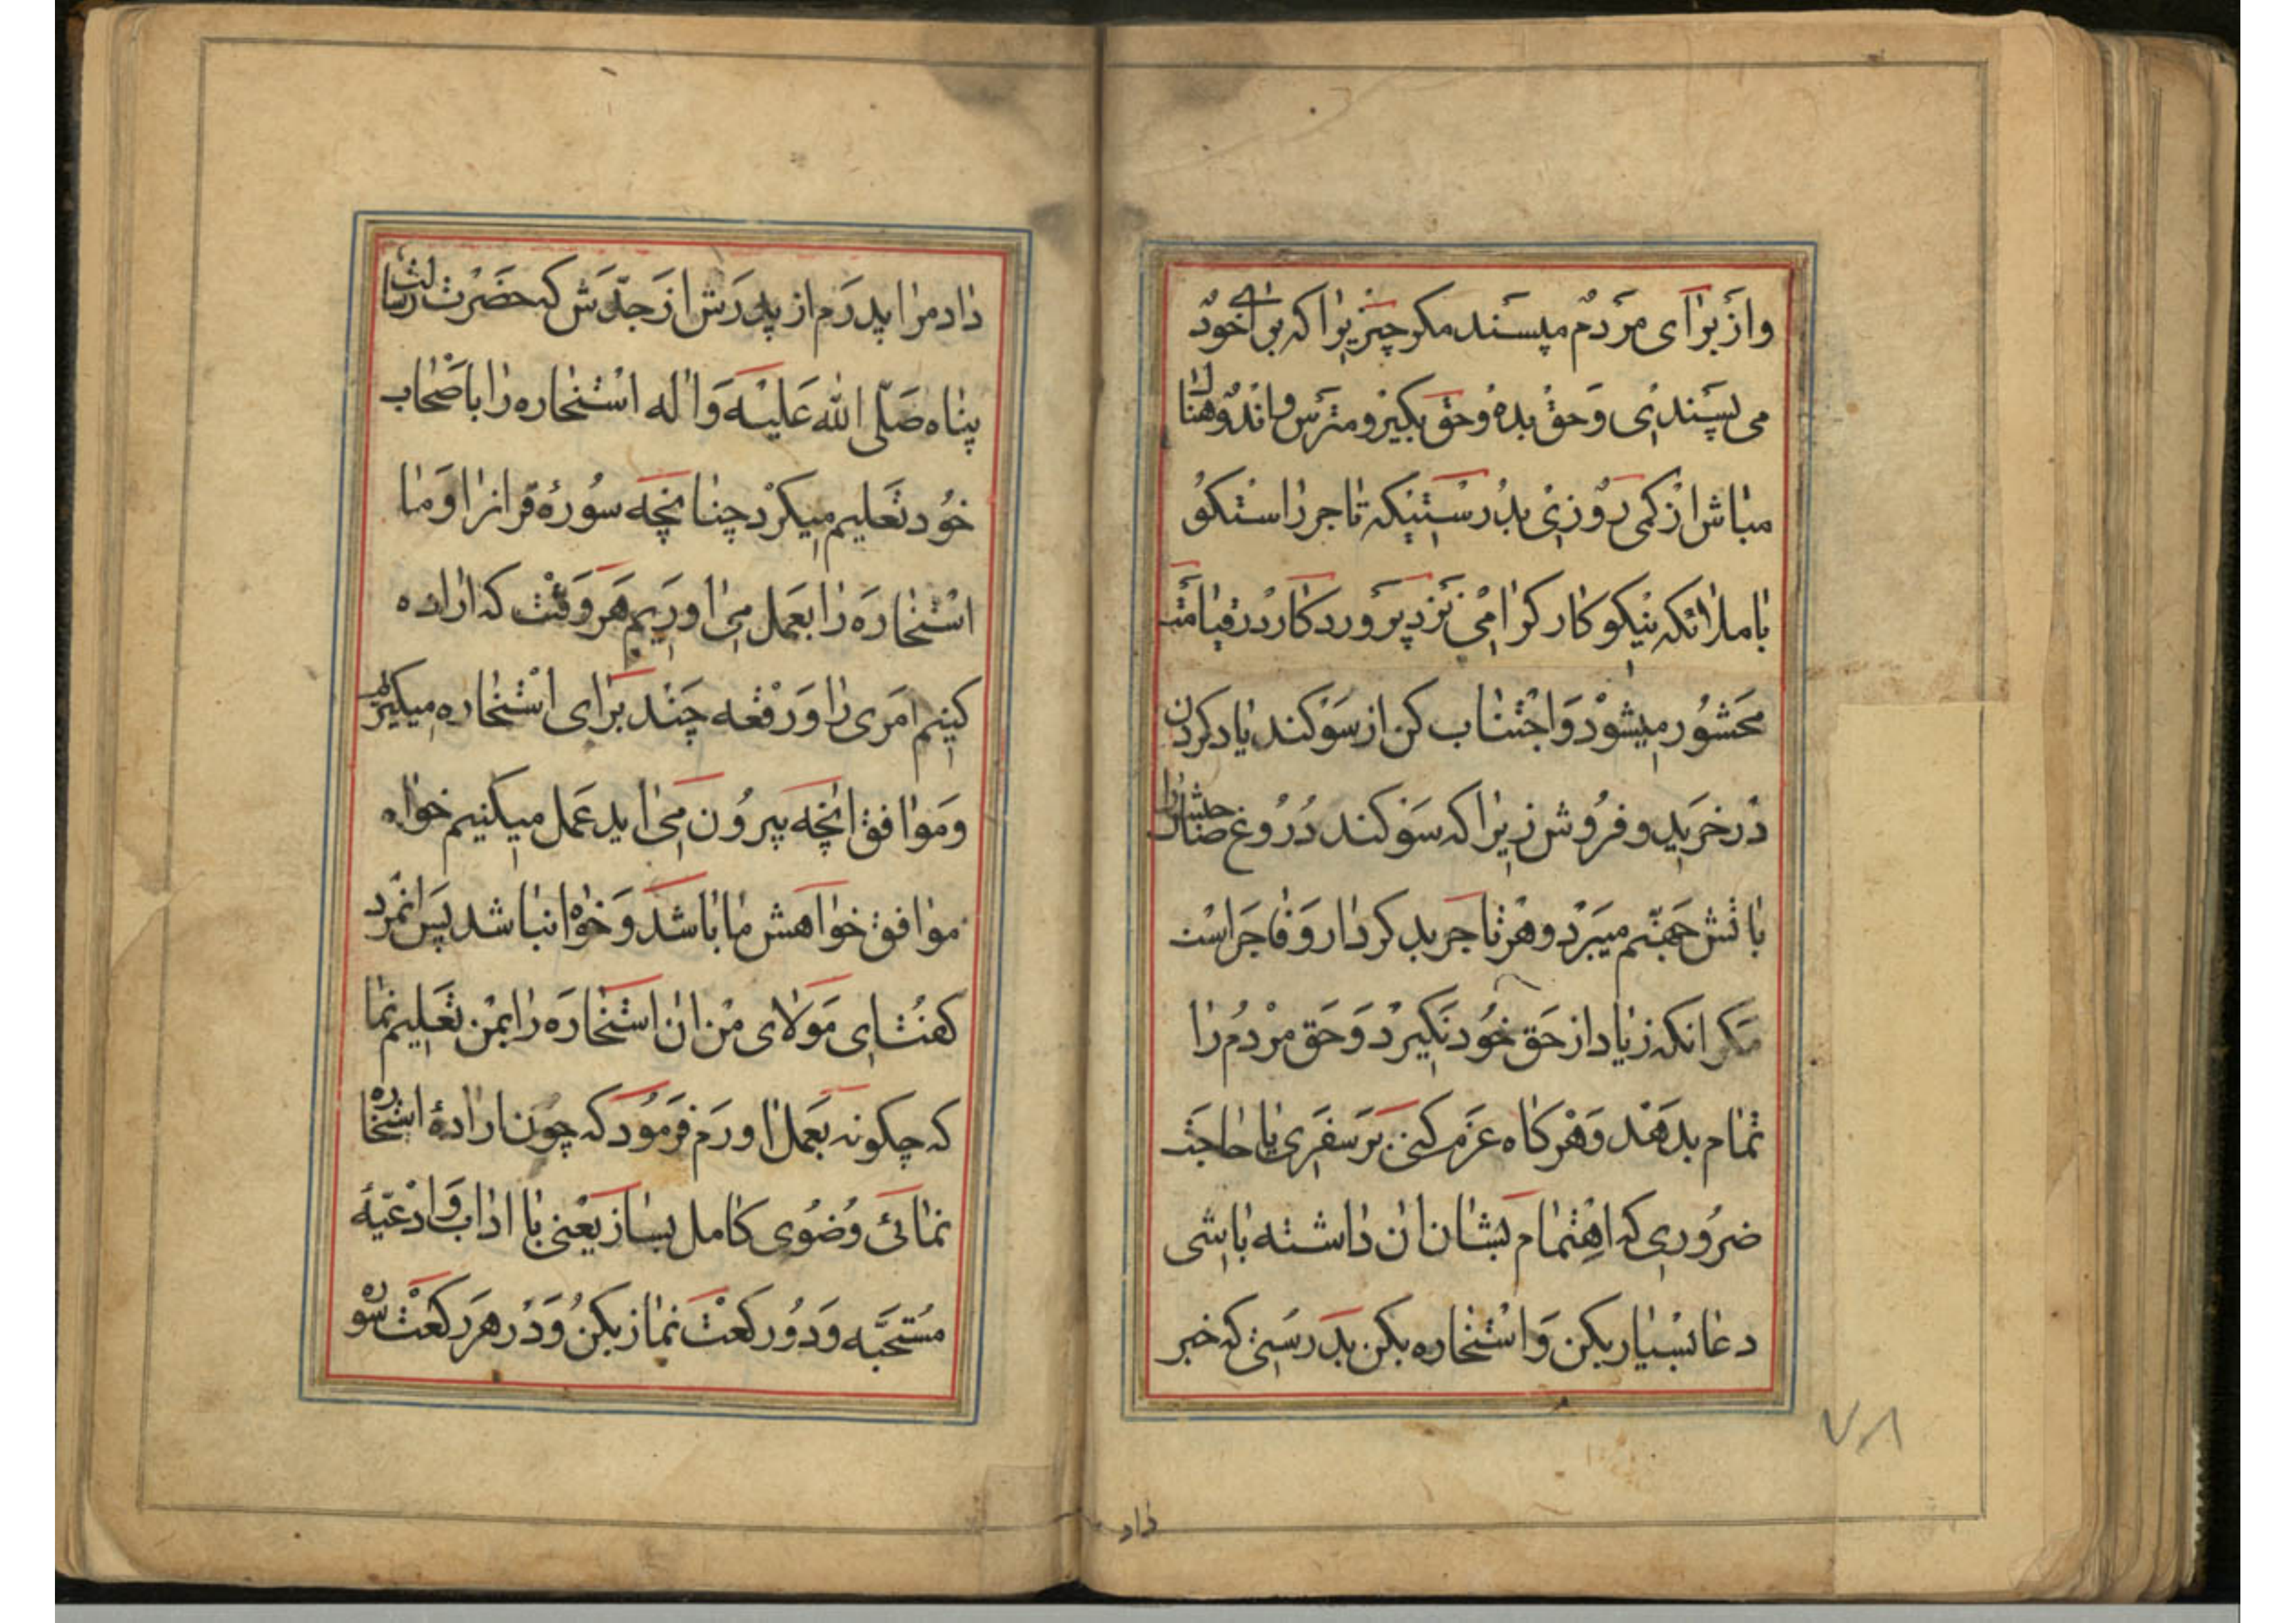 واز برای مردم مپسند مکر چیزیرا که برای خود
می پسندی وحق بده وحق بکیر ومترس واندوهناک
مباش از کمی روزی بدرستیکه تاجر راستکو
باملرانکه نیکو کار کرامی نزد پروردکار در قیامت
محشور میشود واجتناب کن از سوکند یاد کردن
در خرید و فروش زیرا که سوکند دروغ صاحبش را
باتش جهنم میبرد وهر تاجر بد کردار وفاجر است
مکر انکه زیاد از حق خود نکیرد وحق مردم را
تمام بدهد وهر کاه عزم کنی بر سفری یا حاجت
ضروری که اهتمام بشان ان داشته باشی
دعا بسیار بکن واستخاره بکن بدرستی که خبر
داد
۷۸
داد مرا پدرم از پدرش از جدش که حضرت رسالت
پناه صلی الله علیه واله استخاره را باصحاب
خود تعلیم میکرد چنانچه سوره قرانرا وما
استخاره را بعمل می اوریم هر وقت که اراده
کنیم امری را ورقعه چند برای استخاره میکیریم
وموافق انچه بیرون می اید عمل میکنیم خواه
موافق خواهش ما باشد وخواه نباشد پس انمرد
کفت ای مولای من ان استخاره را بمن تعلیم نما
که چکونه بعمل اورم فرمود که چون اراده استخاره
نمائی وضوی کامل بساز یعنی با اداب وادعیه
مستحبه ودو رکعت نماز بکن ودر هر رکعت سوره